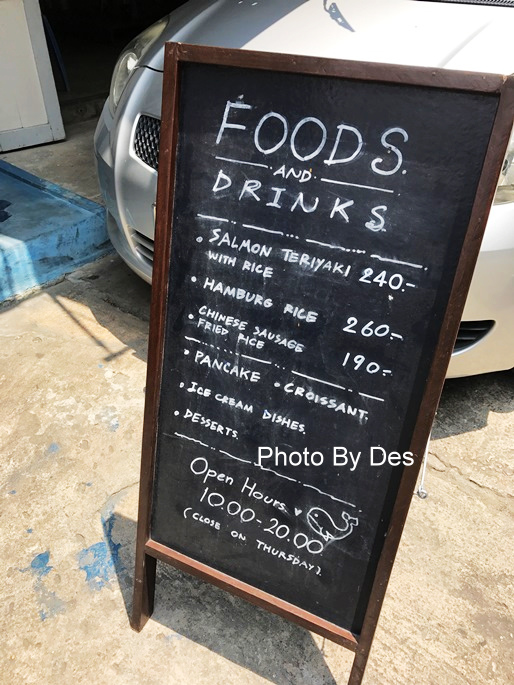 FOODS
AND
DRINKS
SALMON TERIYAKI 240.-
WITH RICE
HAMBURG RICE 260.-
CHINESE SAUSAGE
FRIED RICE 190.-
• PANCAKE • CROISSANT.
• ICE CREAM DISHES.
• DESSERTS.
Photo By Des
Open Hours ♥
10.00-20.00
(CLOSE ON THURSDAY).